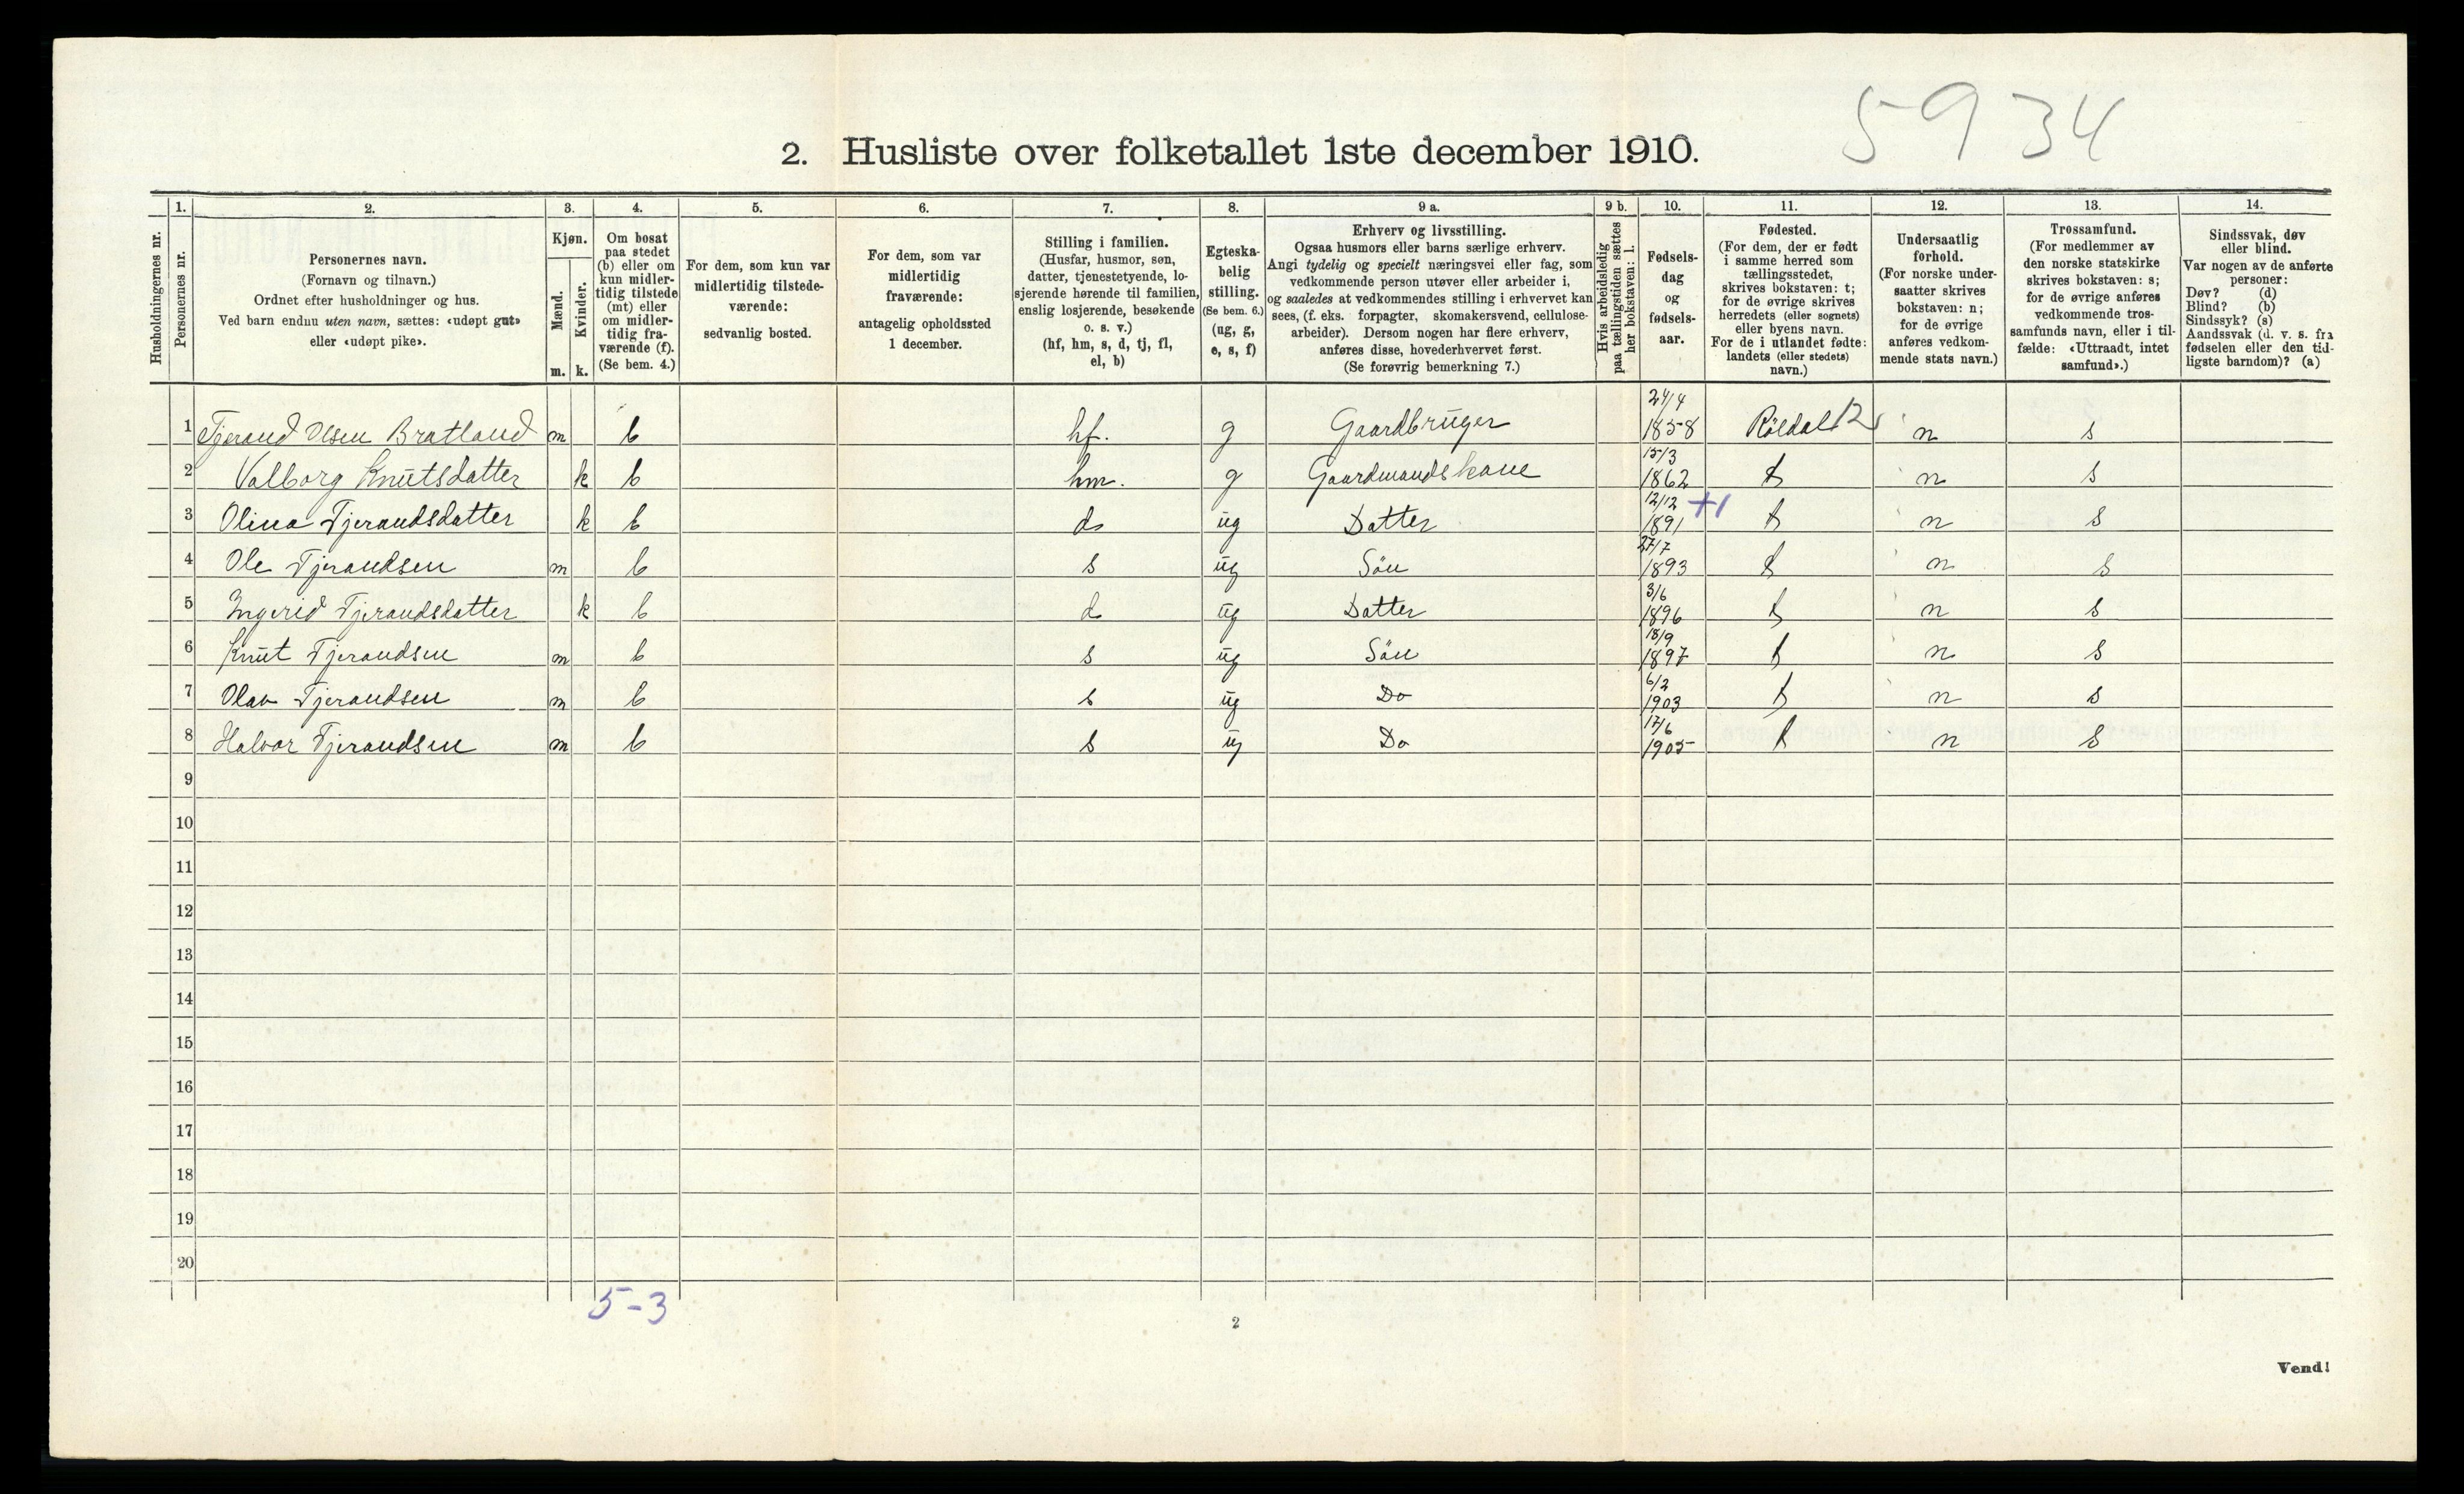 5934
2. Husliste over folketallet 1ste december 1910.
Husholdningernes nr.
1.
Personernes nr.
2.
Personernes navn.
(Fornavn og tilnavn.)
Ordnet efter husholdninger og hus.
Ved barn endnu uten navn, sættes: «udøpt gut»
eller «udøpt pike».
3.
Kjøn.
Mænd.
Kvinder.
m. k.
4.
Om bosat
paa stedet
(b) eller om
kun midler-
tidig tilstede
(mt) eller
om midler-
tidig fra-
værende (f).
(Se bem. 4.)
5.
For dem, som kun var
midlertidig tilstede-
værende:
sedvanlig bosted.
6.
For dem, som var
midlertidig
fraværende:
antagelig opholdssted
1 december.
7.
Stilling i familien.
(Husfar, husmor, søn,
datter, tjenestetyende, lo-
sjerende hørende til familien,
enslig losjerende, besøkende
o. s. v.)
(hf, hm, s, d, tj, fl,
el, b)
8.
Egteska-
belig
stilling.
(Se bem. 6.)
(ug, g,
e, s, f)
9 a.
Erhverv og livsstilling.
Ogsaa husmors eller barns særlige erhverv.
Angi tydelig og specielt næringsvei eller fag, som
vedkommende person utøver eller arbeider i,
og saaledes at vedkommendes stilling i erhvervet kan
sees, (f. eks. forpagter, skomakersvend, cellulose-
arbeider). Dersom nogen har flere erhverv,
anføres disse, hovederhvervet først.
(Se forøvrig bemerkning 7.)
9 b.
Hvis arbeidsledig
paa tællingstiden sættes
her bokstaven: l.
10.
Fødsels-
dag
og
fødsels-
aar.
11.
Fødested.
(For dem, der er født
i samme herred som
tællingsstedet,
skrives bokstaven: t;
for de øvrige skrives
herredets (eller sognets)
eller byens navn.
For de i utlandet fødte:
landets (eller stedets)
navn.)
12.
Undersaatlig
forhold.
(For norske under-
saatter skrives
bokstaven: n;
for de øvrige
anføres vedkom-
mende stats navn.)
13.
Trossamfund.
(For medlemmer av
den norske statskirke
skrives bokstaven: s;
for de øvrige anføres
vedkommende tros-
samfunds navn, eller i til-
fælde: «Uttraadt, intet
samfund».)
14.
Sindssvak, døv
eller blind.
Var nogen av de anførte
personer:
Døv? (d)
Blind? (b)
Sindssyk? (s)
Aandssvak (d. v. s. fra
fødselen eller den tid-
ligste barndom)? (a)
1 Tjerand Olsen Bratland m b hf. g Gaardbruger 24/4 1858 Röldal 12 n s
2 Valborg Knutsdatter k b hm. g Gaardmandskone 15/3 1862 t n s
3 Olina Tjerandsdatter k b d ug Datter 12/12 1891 +1 t n s
4 Ole Tjerandsen m b s ug Sön 27/7 1893 t n s
5 Ingerid Tjerandsdatter k b d ug Datter 3/6 1896 t n s
6 Knut Tjerandsen m b s ug Sön 18/9 1897 t n s
7 Olav Tjerandsen m b s ug Do 6/2 1903 t n s
8 Halvor Tjerandsen m b s ug Do 17/6 1905 t n s
9
10
11
12
13
14
15
16
17
18
19
20
5-3
2
Vend!